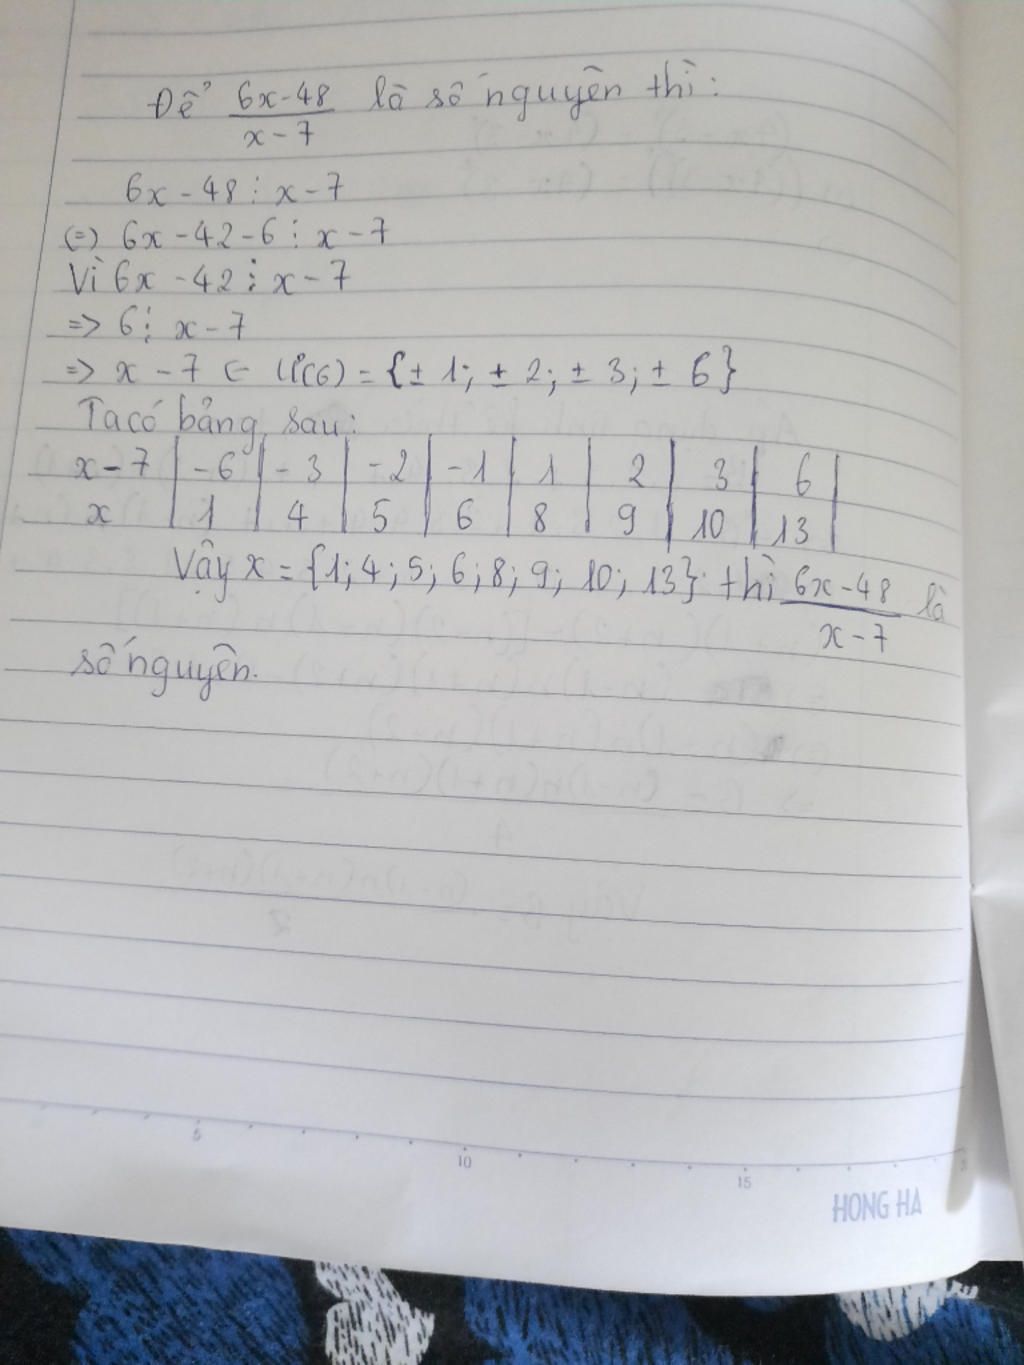 Để 6x-48/x-7 là số nguyên thì:
6x-48⋮x-7
(=) 6x-42-6⋮x-7
Vì 6x-42⋮x-7
=> 6⋮x-7
=> x-7 ∈ Ư(6) = {±1; ±2; ±3; ±6}
Ta có bảng sau:
x-7 | -6 | -3 | -2 | -1 | 1 | 2 | 3 | 6 |
x | 1 | 4 | 5 | 6 | 8 | 9 | 10 | 13 |
Vậy x = {1; 4; 5; 6; 8; 9; 10; 13} thì 6x-48/x-7 là
số nguyên.
5 10 15
HONG HA